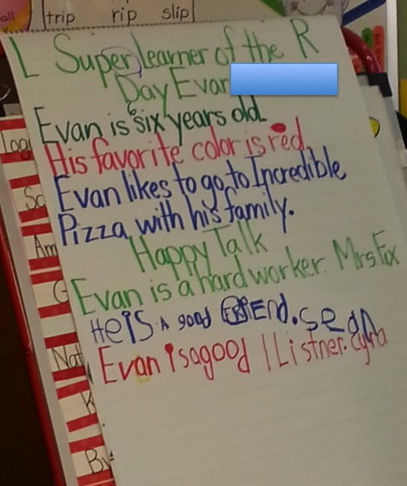 all trip rip slip
L Super learner of the R
Day Evan
Evan is six years old.
His favorite color is red.
Evan likes to go to Incredible
Pizza with his family.
Happy Talk
Evan is a hard worker. Mrs Fix
He is a good friend. Sean
Evan is a good listner.
Sc
Am
G
Not
K
By